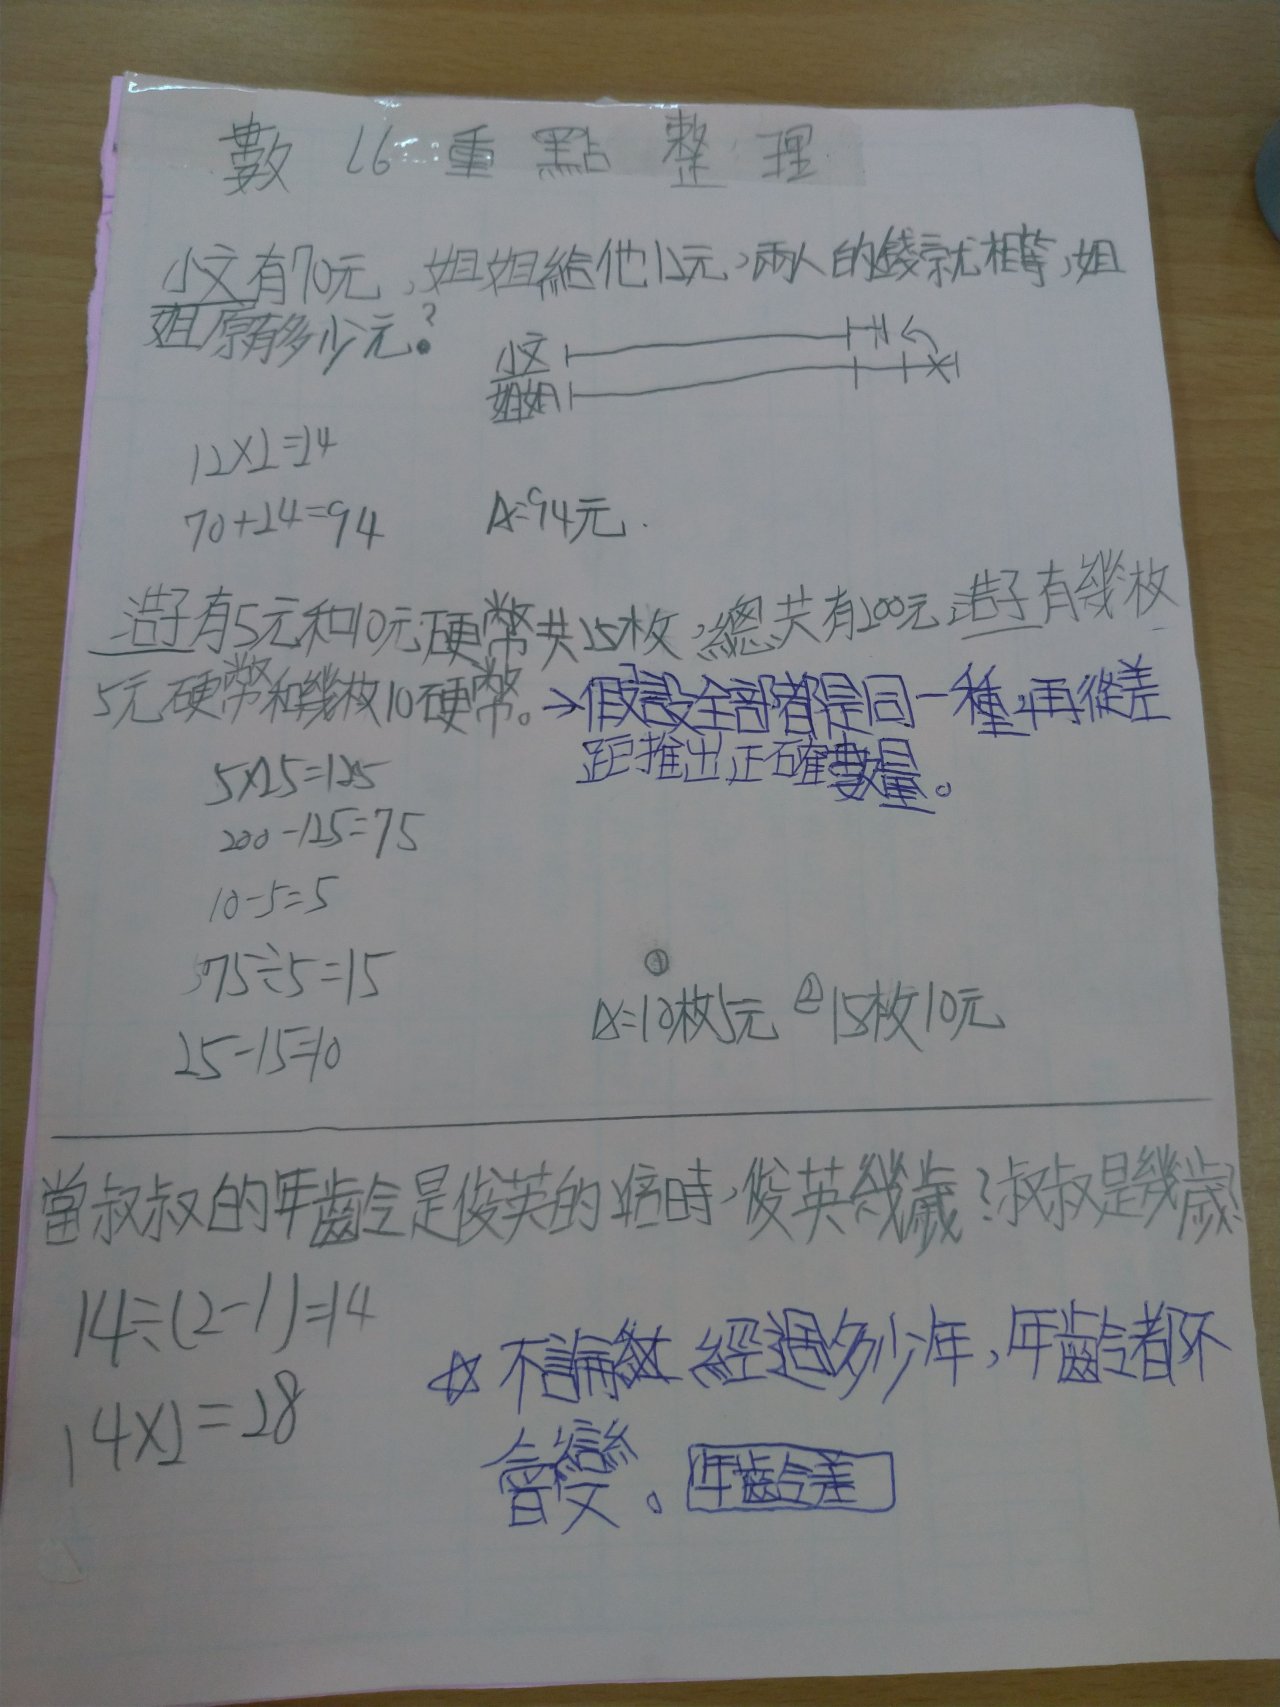 數 L6 重點整理
小文有70元，姐姐給他12元，兩人的錢就相等，姐
姐原有多少元？
小文
姐姐
12×2=24
70+24=94
A=94元.
浩子有5元和10元硬幣共25枚，總共有200元，浩子有幾枚
5元硬幣和幾枚10硬幣。→假設全部都是同一種，再從差
距推出正確數量。
5×25=125
200-125=75
10-5=5
75÷5=15
25-15=10
①
A=10枚5元 ②15枚10元
當叔叔的年齡是俊英的2倍時，俊英幾歲？叔叔是幾歲？
14÷(2-1)=14
14×2=28
☆不論 經過多少年，年齡都不
會變。年齡差